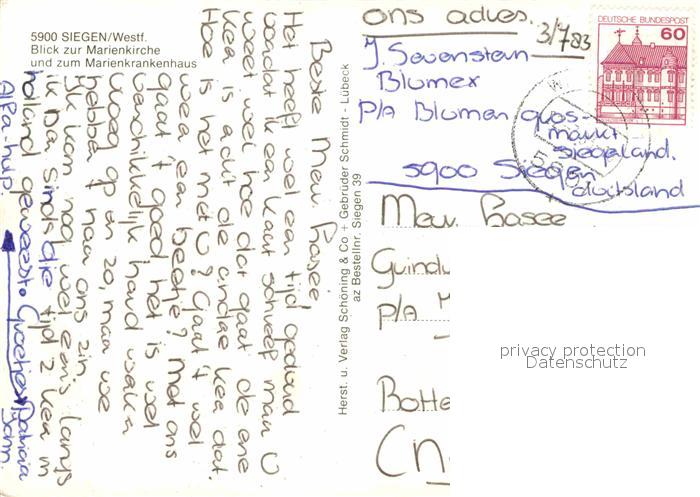 5900 SIEGEN/Westf.
Blick zur Marienkirche
und zum Marienkrankenhaus
Beste Mew. Rasee
Het heeft wel een tijd geduurd
voordat ik een kaart schreef maar U
weet wel hoe dat gaat de ene
kea is acht de andae kea dat.
Hoe is het met U? Gaat 't wel
weer een beetje? Met ons
gaat 't goed het is wel
verschikkelijk hard weken
vroeg op en zo, maar we
hebben 't naar ons zin
Ik kom nog wel eens langs
ik ba sinds die tijd 2 kea in
holland geweest. Groetjes Patricia
John.
Alfa-hulp
Herst. u. Verlag Schöning & Co + Gebrüder Schmidt - Lübeck
az Bestellnr. Siegen 39
ons adres.
3/783
J. Sevenstern
Blumex
P/A Blumen gros-
markt
siegaland.
5900 Siegen
duitsland
DEUTSCHE BUNDESPOST
60
590
Mew. Rasee
Guindu
P/A
Botte
Cn
privacy protection
Datenschutz